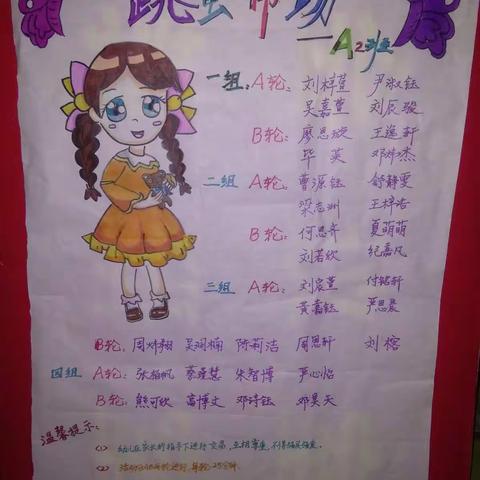 跳蚤市场
—A2班
一组:A轮:刘梓萱 尹淑钰
吴嘉萱 刘辰骏
B轮:廖思璇 王逢轩
毕英 邓烨杰
二组 A轮:曹源钰 舒静雯
梁志洲 王梓浩
B轮:何思年 夏萌萌
刘若欣 纪嘉凡
三组 A轮:刘宸萱 付铭轩
黄嘉钰 严思晨
B轮:周烨翔 吴润楠 陈莉洁 周思轩 刘榕
四组 A轮:张裕帆 蔡瑾慧 朱智博 严心怡
B轮:熊可欣 高博文 邓诗钰 邓昊天
温馨提示:
(1) 幼儿在家长的指导下进行交易,互相尊重,不得
(2) 活动分AB两轮进行,每轮25分钟.